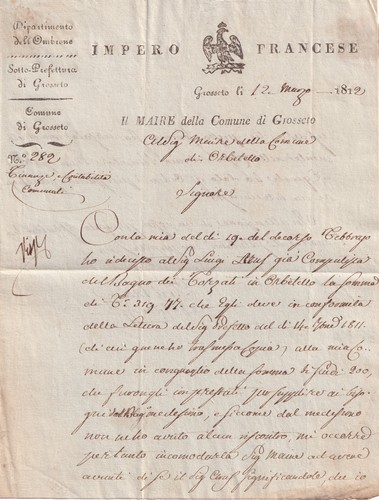 Dipartimento
dell'Ombrone
Sotto-Prefettura
di Grosseto
Comune
di Grosseto
N.º 282
Finanze e Contabilità
Comunali
IMPERO FRANCESE
Grosseto li 12. Marzo 1812
Il MAIRE della Comune di Grosseto
Al Sig Maire della Comune
di Orbetello
Signore
Con la mia del dì 19. del decorso Febbrajo
ho al Sig Luigi già Computista
del Bagno dei Forzati in Orbetello la somma
di 319 77. che Egli deve in conformità
della Lettera del Sig Prefetto del dì 14 1811.
(di cui gliene ho trasmessa Copia) alla mia Co-
mune in conguaglio della somma di Scudi 200,
che furongli imprestati per supplire ai biso-
gni medesimo, e siccome dal medesimo
non ne ho avuto alcun riscontro, mi occorre
pertanto incomodarla Sig Maire ad avere
avanti di se il Sig significandole che io